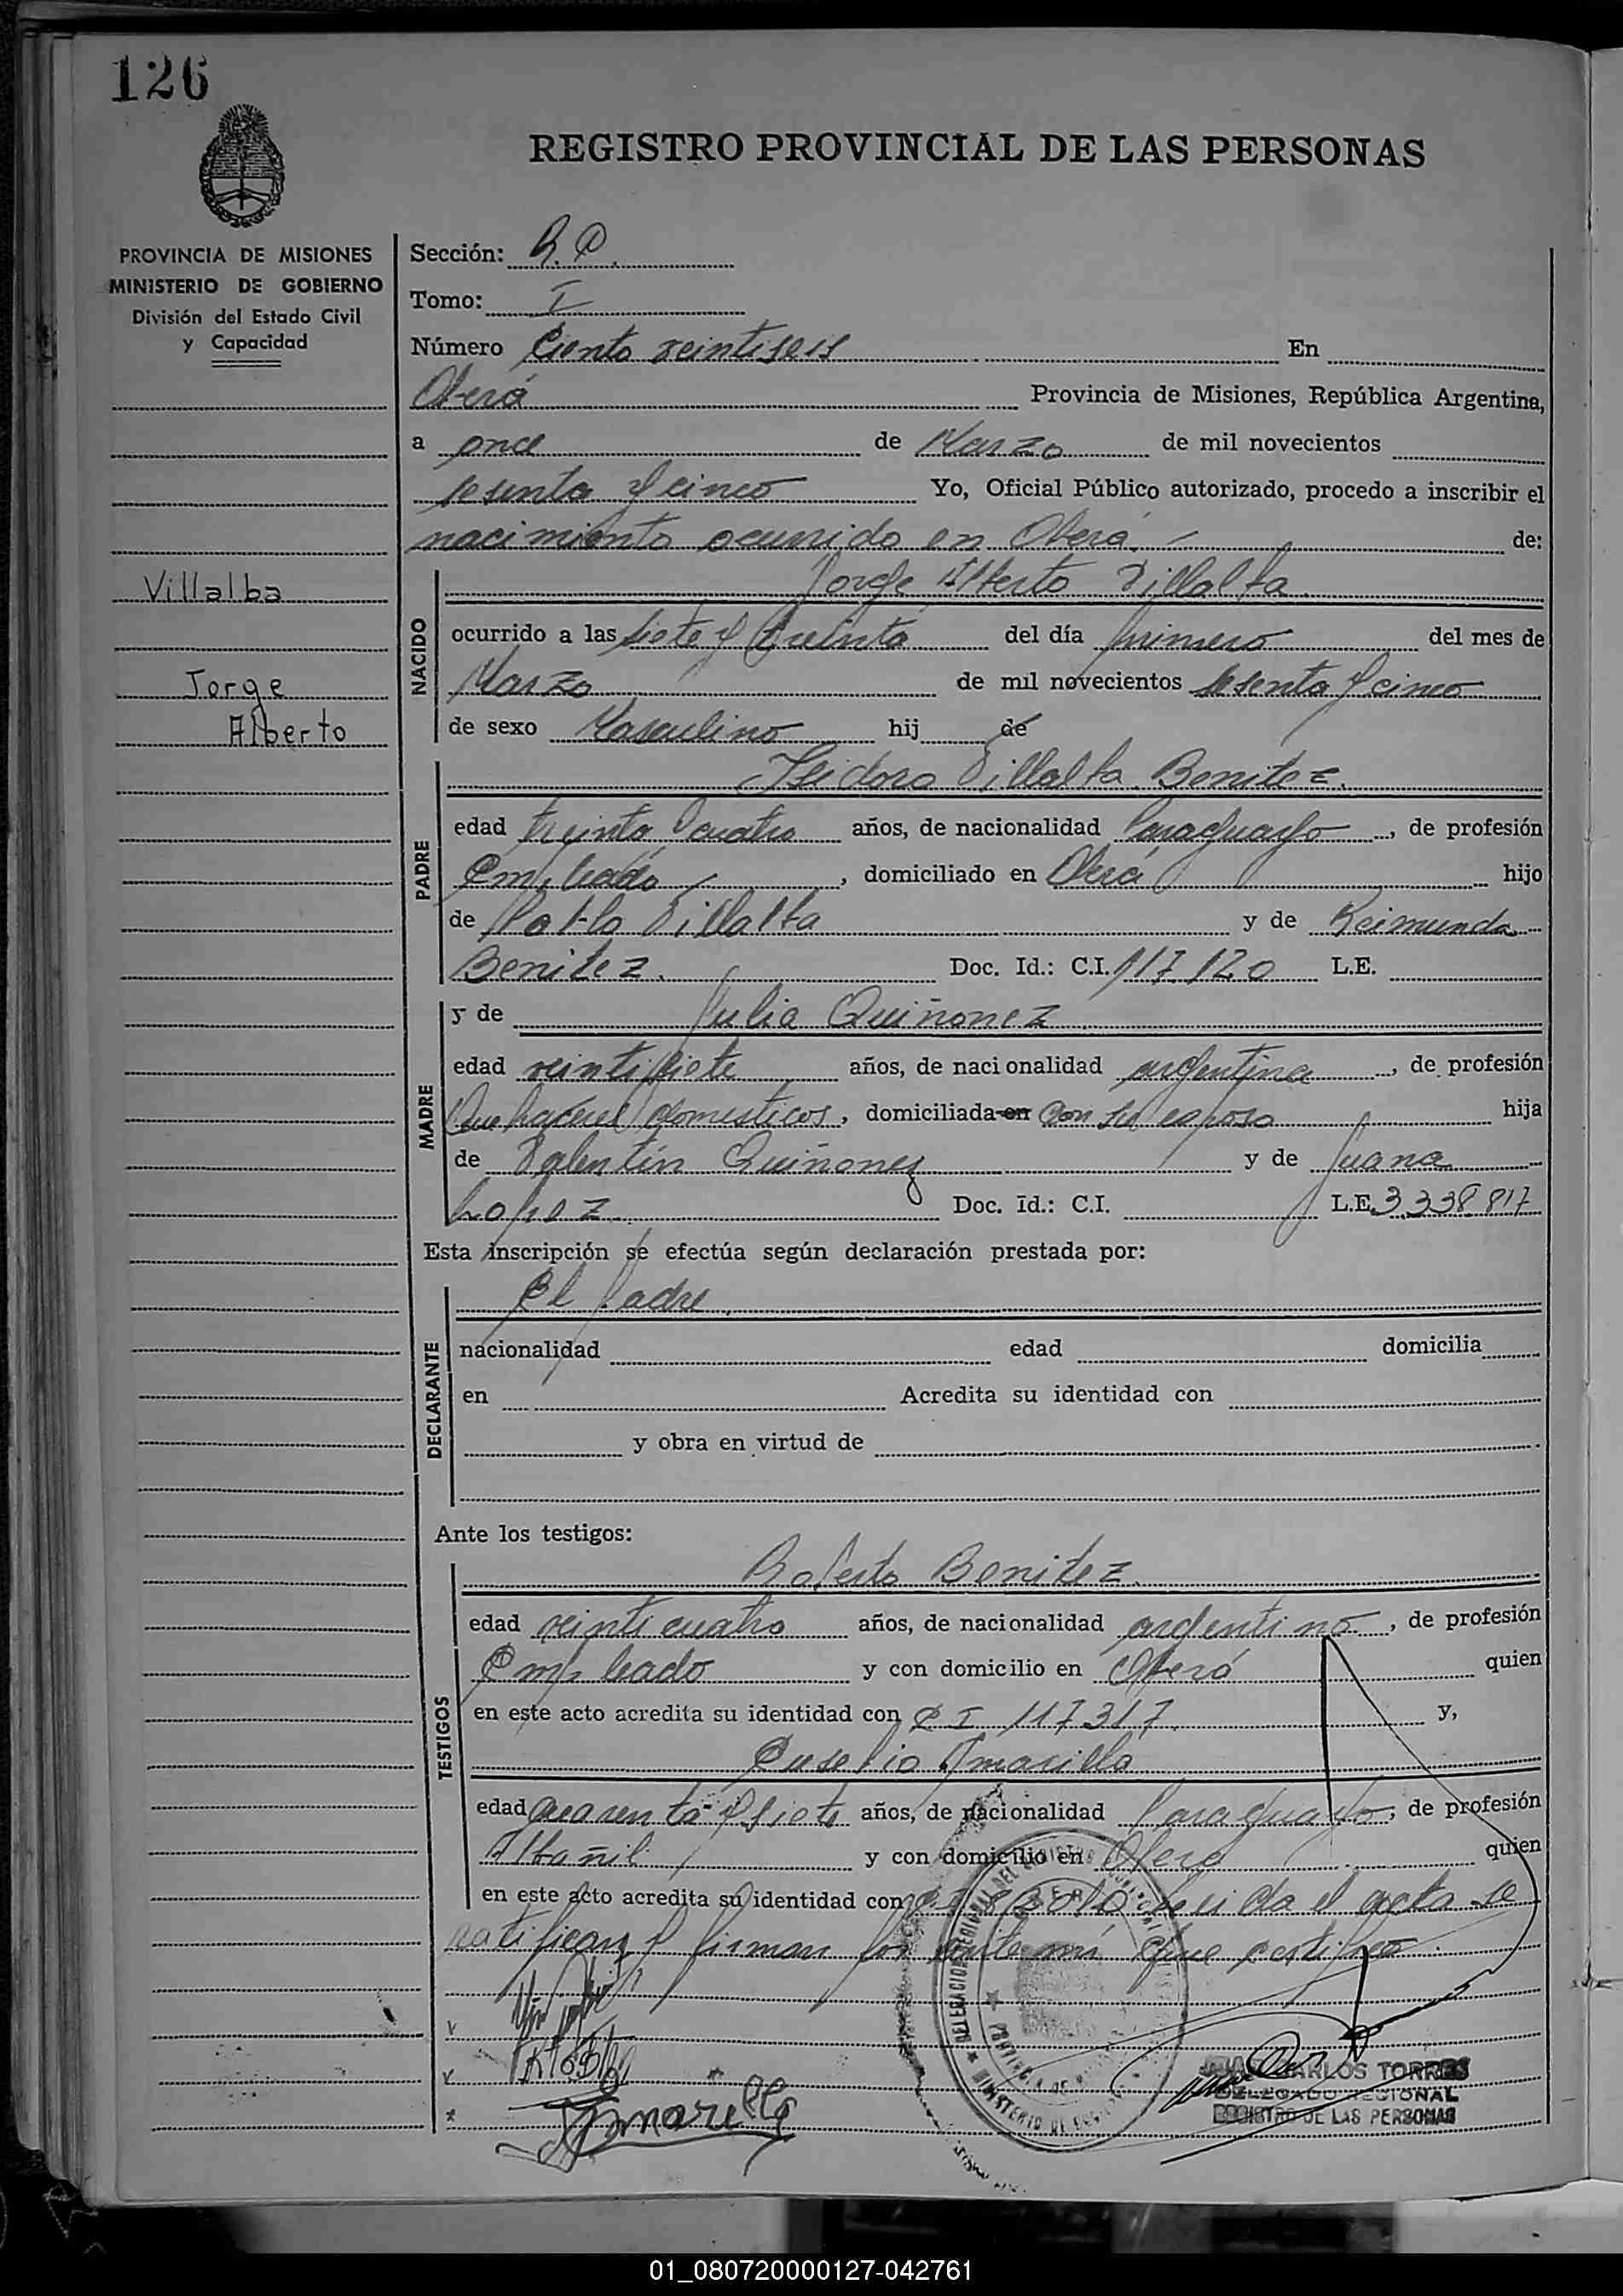 126
REGISTRO PROVINCIAL DE LAS PERSONAS
PROVINCIA DE MISIONES
MINISTERIO DE GOBIERNO
División del Estado Civil
y Capacidad
Villalba
Jorge
Alberto
Sección:
Tomo: I
Número Ciento veintiseis En
Oberá Provincia de Misiones, República Argentina,
a once de Marzo de mil novecientos
sesenta y cinco Yo, Oficial Público autorizado, procedo a inscribir el
nacimiento ocurrido en Oberá. de:
NACIDO
Jorge Alberto Villalba.
ocurrido a las siete y treinta del día primero del mes de
Marzo de mil novecientos sesenta y cinco
de sexo Masculino hij de
PADRE
Isidoro Villalba Benitez.
edad treinta y cuatro años, de nacionalidad Paraguayo, de profesión
Empleado, domiciliado en Oberá hijo
de Pablo Villalba y de Reimunda
Benitez. Doc. Id.: C.I. 117.120 L.E.
MADRE
y de Julia Quiñonez
edad veintisiete años, de nacionalidad argentina, de profesión
Quehaceres domesticos, domiciliada en con su esposo hija
de Valentín Quiñonez y de Juana
Lopez. Doc. Id.: C.I. L.E. 3.338.817
Esta inscripción se efectúa según declaración prestada por:
DECLARANTE
El padre.
nacionalidad edad domicilia
en Acredita su identidad con
y obra en virtud de
Ante los testigos:
TESTIGOS
Roberto Benitez.
edad veinticuatro años, de nacionalidad argentino, de profesión
Empleado y con domicilio en Oberá quien
en este acto acredita su identidad con C I 117317. y,
Eusebio Amarilla
edad cuarenta y siete años, de nacionalidad Paraguayo, de profesión
Albañil y con domicilio en Oberá quien
en este acto acredita su identidad con Leida el acta se
ratifican y firman por ante mí que certifico.
Amarilla
CARLOS TORRES
DELEGADO REGIONAL
REGISTRO DE LAS PERSONAS
01_080720000127-042761